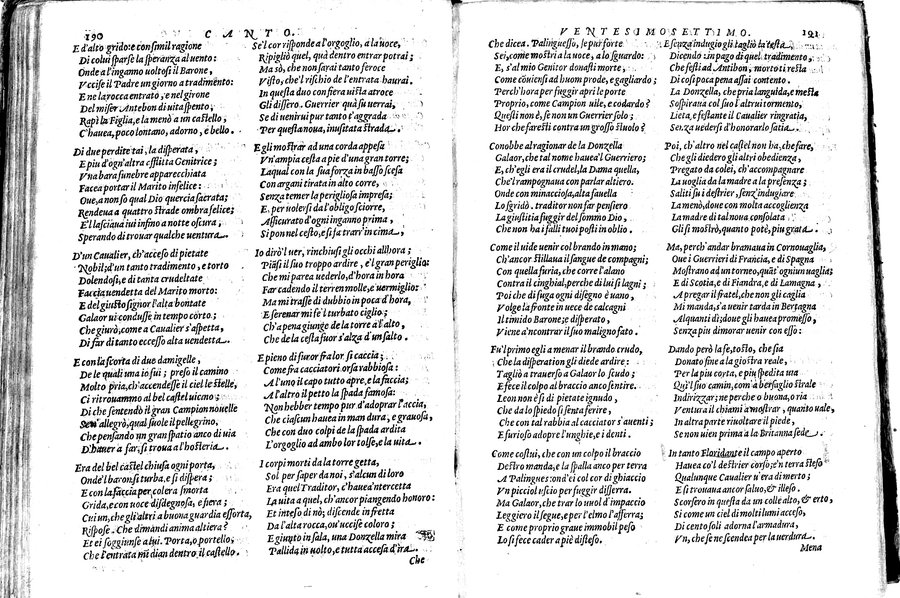 190 CANTO.
E d'alto grido: e con simil ragione
Di colui sparse la speranza al uento:
Onde a l'ingamo uoltosi il Barone,
Vccise il Padre un giorno a tradimento:
E ne la rocca entrato, e nel girone
Del miser Antebon di uita spento;
Rapì la Figlia, e la menò a un castello,
C'hauea, poco lontano, adorno, e bello.
Di due perdite tai, la disperata,
E piu d'ogn'altra afflitta Genitrice;
Vna bara funebre apparecchiata
Facea portar il Marito infelice:
Oue, a non so qual Dio quercia sacrata;
Rendeua a quattro strade ombra felice;
E l'lasciana iui infino a notte oscura,
Sperando di trouar qualche uentura.
D'un Caualier, ch'acceso di pietate
Nobil; d'un tanto tradimento, e torto
Dolendosi, e di tanta crudeltate
Faccia uendetta del Marito morto:
E del giusto signor l'alta bontate
Galaor ui condusse in tempo corto;
Che giurò, come a Caualier s'aspetta,
Di far di tanto eccesso alta uendetta.
E con la scorta di due damigelle,
De le quali una io fui; preso il camino
Molto pria, ch'accendesse il ciel le stelle,
Ci ritrouammo al bel castel uicino;
Di che sentendo il gran Campion nouelle
Sen' allegrò, qual suole il pellegrino,
Che pensando un gran spatio anco di uia
D'hauer a far, si troua a l'hosteria.
Era del bel castel chiusa ogni porta,
Onde'l baron si turba, e si dispera;
E con la faccia per colera smorta
Grida, e con uoce disdegnosa, e fera;
Cui un, che gli altri a buona guardia essorta,
Rispose. Che dimandi anima altiera?
Et ei soggiunse a lui. Porta, o portello;
Che l'entrata mi dian dentro il castello.
Se'l corrisponde a l'orgoglio, a la uoce,
Ripigliò quel, quà dentro entrar potrai;
Ma sò, che non sarai tanto feroce
Visto, che'l rischio de l'entrata haurai.
In questa duo con fiera uista atroce
Gli dissero. Guerrier quà su uerrai,
Se di uenirui pur tanto t'aggrada
Per questa noua, inusitata strada.
E gli mostrar ad una corda appesa
Vn'ampia cesta a piè d'una gran torre;
La qual con la sua forza in basso scesa
Con argani tirata in alto corre,
Senza temer la perigliosa impresa;
E, per uolersi da l'obligo sciorre,
Assicurato d'ogni inganno prima,
Si pon nel cesto, e si fa trar'in cima,
Io dirò'l uer, rinchiusi gli occhi allhora;
Piãsi il suo troppo ardire, e'l gran periglio:
Che mi parea uederlo, d'hora in hora
Far cadendo il terren molle, e uermiglio:
Ma mi trasse di dubbio in poca d'hora,
E serenar mi fe'l turbato ciglio;
Ch'a pena giunge da la torre a l'alto,
Che de la cesta fuor s'alza d'un salto.
E pieno di furor fra lor si caccia;
Come fra cacciatori orsa rabbiosa:
A l'uno il capo tutto apre, e la faccia;
A l'altro il petto la spada famosa:
Non hebber tempo pur d'adoprar l'accia,
Che ciascun hauea in man dura, e grauosa,
Che con duo colpi de la spada ardita
L'orgoglio ad ambo lor tolse, e la uita.
I corpi morti da la torre getta,
Sol per saper da noi, s'alcun di loro
Era quel Traditor, c'hauea intercetta
La uita a quel, ch'ancor piangendo honoro:
Et inteso di nò; discende in fretta
Da l'alta rocca, ou'uccise coloro;
E giunto in sala, una Donzella mira
Pallida in uolto, e tutta accesa d'ira.
Che
VENTESIMOSETTIMO. 191
Che dicea. Palinguesso, se pur forte
Sei, come mostri a la uoce, a lo sguardo:
E, s'al mio Genitor donasti morte,
Come cõuiensi ad huom prode, e gagliardo;
Perch'hora per fuggir apri le porte
Proprio, come Campion uile, e codardo?
Questi non è, se non un Guerrier solo;
Hor che faresti contra un grosso stuolo?
Conobbe al ragionar de la Donzella
Galaor, che tal nome hauea'l Guerriero;
E, ch'egli era il crudel, la Dama quella,
Che'l rampognaua con parlar altiero.
Onde con minacciosa, alta fauella
Lo sgridò. traditor non far pensiero
La giustitia fuggir del sommo Dio,
Che non ha i falli tuoi posti in oblio.
Come il uide uenir col brando in mano;
Ch'ancor stillaua il sangue de compagni;
Con quella furia, che corre l'alano
Contra il cinghial, perche di lui si lagni;
Poi che di fuga ogni disegno è uano,
Volge la fronte in uece de calcagni
Il timido Barone; e disperato,
Viene a'ncontrar il suo maligno fato.
Fu'l primo egli a menar il brando crudo,
Che la disperation gli diede ardire:
Tagliò a trauerso a Galaor lo scudo;
E fece il colpo al braccio anco sentire.
Leon non è si di pietate ignudo,
Che da lo spiedo si senta ferire,
Che con tal rabbia al cacciator s'auenti;
E furioso adopre l'unghie, e i denti.
Come costui, che con un colpo il braccio
Destro manda, e la spalla anco per terra
A Palingues: ond'ei col cor di ghiaccio
Vn picciol uscio per fuggir disserra.
Ma Galaor, che trar lo uuol d'impaccio
Leggiero il segue, e per l'elmo l'afferra;
E come proprio graue immobil peso
Lo si fece cader a piè disteso.
E senza indugio gli tagliò la testa
Dicendo in pago di quel tradimento,
Che festi ad Antibon, morto ti resta
Di cosi poca pena assai contento.
La Donzella, che pria languida, e mesta
Sospiraua col suol l'altrui tormento,
Lieta, e festante il Caualier ringratia,
Senza uedersi d'honorarlo satia.
Poi, ch'altro nel castel non ha, che fare,
Che gli diedero gli altri obedienza,
Pregato da colei, ch'accompagnare
La uoglia da la madre a la presenza;
Saliti su i destrier, senz'indugiare
La menò, doue con molta accoglienza
La madre di tal noua consolata
Gli si mostrò, quanto potè, piu grata.
Ma, perch'andar bramaua in Cornouaglia,
Oue i Guerrieri di Francia, e di Spagna
Mostrano ad un torneo, quãt'ogniun uaglia;
E di Scotia, e di Fiandra, e di Lamagna,
A pregar il fratel, che non gli caglia
Mi manda, s'a uenir tarda in Bertagna
Alquanti dì; doue gli hauea promesso,
Senza piu dimorar uenir con esso:
Dando però la fe, tosto, che sia
Donato fine a la giostra reale,
Per la piu corta, e piu spedita uia
Qui'l suo camin, com'a bersaglio strale
Indirizzar; ne perche o buona, o ria
Ventura il chiami a mostrar, quanto uale,
In altra parte riuoltare il piede,
Se non uien prima a la Britanna sede.
In tanto Floridante il campo aperto
Hauea co'l destrier corso; e'n terra steso
Qualunque Caualier u'era di merto;
E si trouaua ancor saluo, & illeso.
Scorsero in questa da un colle alto, & erto,
Si come un ciel di molti lumi acceso,
Di cento soli adorna l'armadura,
Vn, che se ne scendea per la uerdura.
Mena